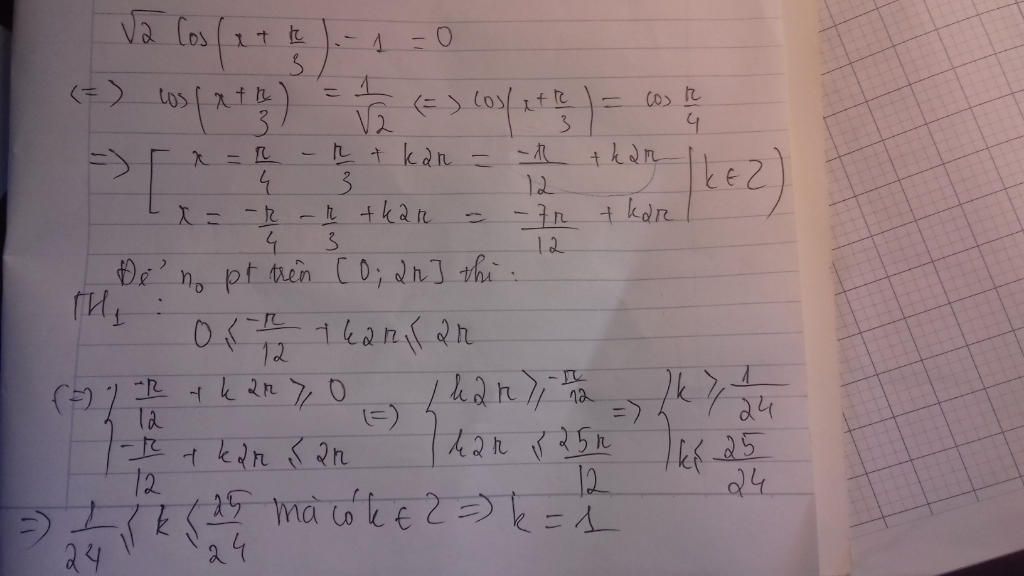 √2 cos(x + π/3) - 1 = 0
<=> cos(x + π/3) = 1/√2 <=> cos(x + π/3) = cos π/4
=> [ x = π/4 - π/3 + k2π = -π/12 + k2π
x = -π/4 - π/3 + k2π = -7π/12 + k2π (k ∈ Z)
Để n₀ pt trên [0; 2π] thì:
TH₁ :
0 ≤ -π/12 + k2π ≤ 2π
(=) { -π/12 + k2π ≥ 0 (=) { k2π ≥ -π/12 => { k ≥ 1/24
-π/12 + k2π ≤ 2π k2π ≤ 25π/12 k ≤ 25/24
=> 1/24 ≤ k ≤ 25/24 mà có k ∈ Z => k = 1